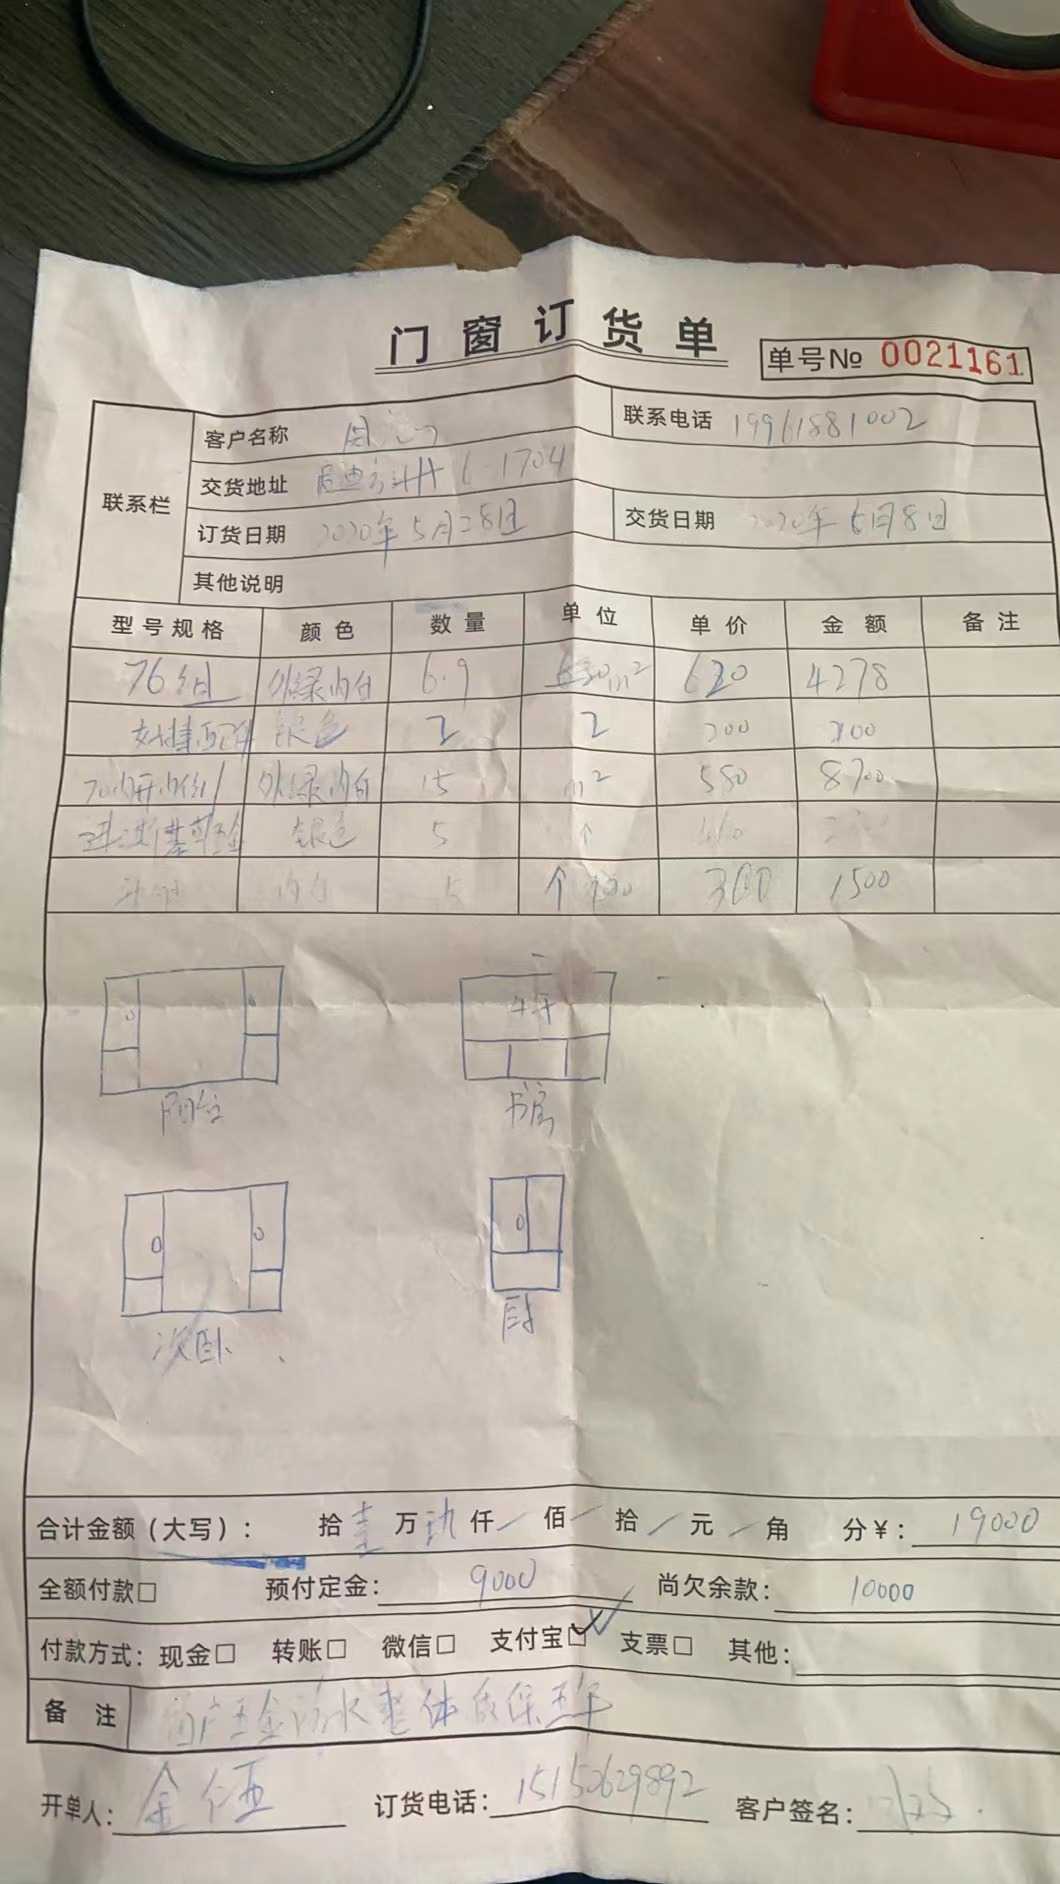 门窗订货单
单号№ 0021161
联系栏
客户名称 周
联系电话 19961881002
交货地址 6-1704
订货日期 2020年5月28日
交货日期 2020年6月8日
其他说明
型号规格 颜色 数量 单位 单价 金额 备注
76组 外绿内白 6.9 m² 620 4278
银色 2 2 200
70内开内倒 外绿内白 15 m² 580 8700
五金 银色 5 个
内白 5 个 300 1500
平开
阳台 书房
次卧 厨
合计金额(大写): 拾 壹 万 玖 仟 / 佰 / 拾 / 元 / 角 分¥: 19000
全额付款□ 预付定金: 9000 尚欠余款: 10000
付款方式: 现金□ 转账□ 微信□ 支付宝☑ 支票□ 其他:
备注 窗户五金防水整体质保五年
开单人: 金 订货电话: 15150629892 客户签名: